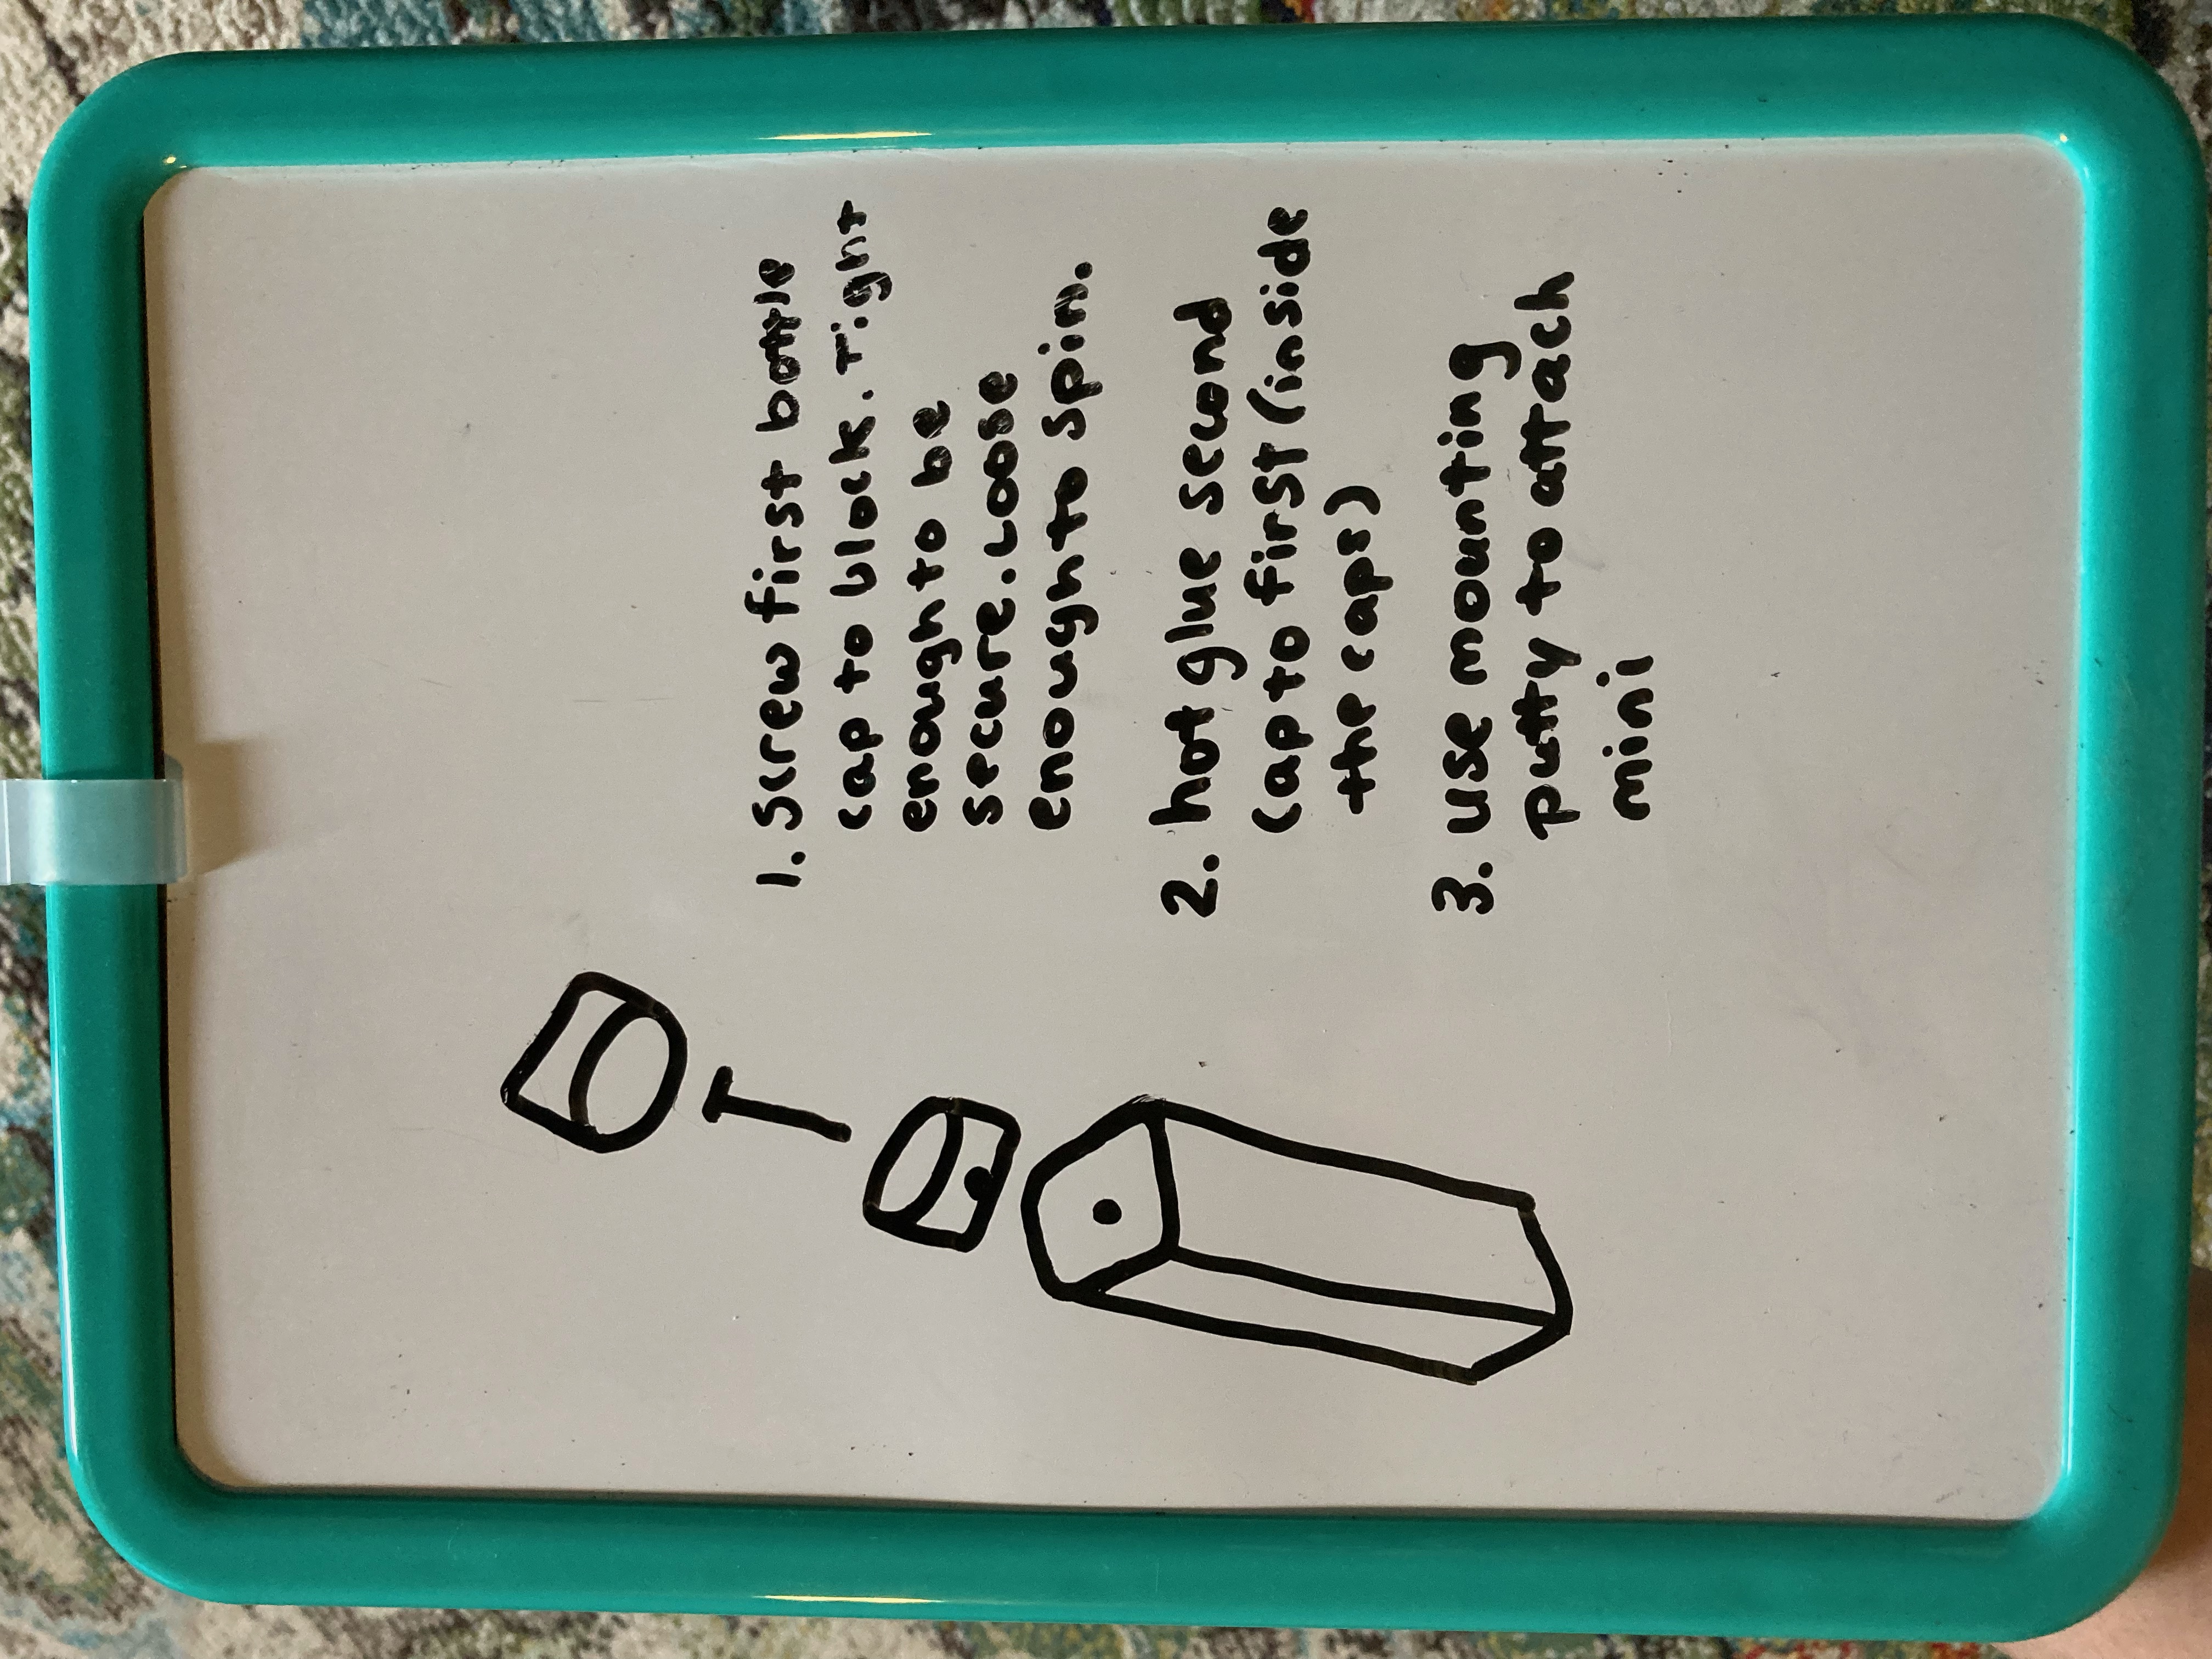 1. Screw first bottle
cap to block. Tight
enough to be
secure. Loose
enough to spin.
2. hot glue second
cap to first (inside
the caps)
3. use mounting
putty to attach
mini